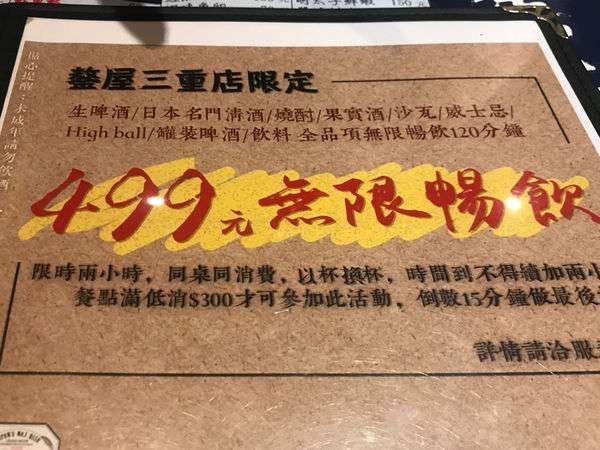 鏊屋三重店限定
生啤酒/日本名門清酒/燒酎/果實酒/沙瓦/威士忌/
High ball/罐裝啤酒/飲料 全品項無限暢飲120分鐘
499元無限暢飲
限時兩小時，同桌同消費，以杯換杯，時間到不得續加兩小
餐點滿低消$300才可參加此活動，倒數15分鐘做最後
詳情請洽服
貼心提醒：未成年請勿飲酒